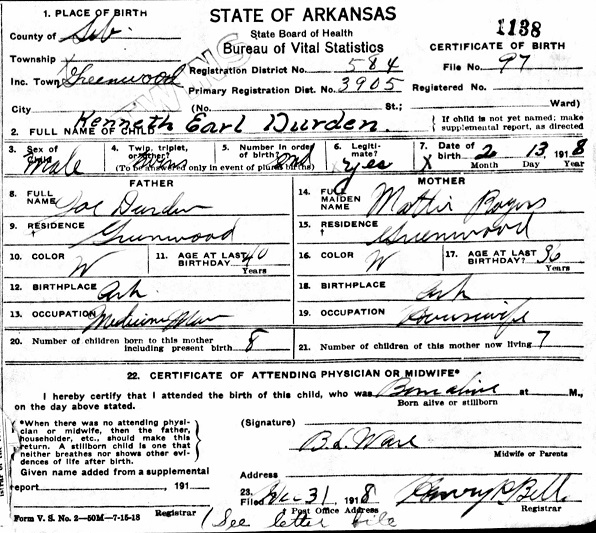 1. PLACE OF BIRTH
STATE OF ARKANSAS
State Board of Health
Bureau of Vital Statistics
1138
CERTIFICATE OF BIRTH
County of Seb.
Township
Registration District No. 584
File No. 97
Inc. Town Greenwood
Primary Registration Dist. No. 3905
Registered No.
TWINS
City (No. St.; Ward)
2. FULL NAME OF CHILD Kenneth Earl Durden.
If child is not yet named; make supplemental report, as directed
3. Sex of Child Male
4. Twip, triplet, or other? Twins
5. Number in order of birth? 2nd
(To be answered only in event of plural births)
6. Legiti- mate? yes
7. Date of birth 13 1918
Month Day Year
FATHER
MOTHER
8. FULL NAME Joe Durden
14. FULL MAIDEN NAME Mattie Rogers
9. RESIDENCE Greenwood
15. RESIDENCE Greenwood
10. COLOR W
11. AGE AT LAST BIRTHDAY 40 Years
16. COLOR W
17. AGE AT LAST BIRTHDAY? 36 Years
12. BIRTHPLACE Ark.
18. BIRTHPLACE Ark
13. OCCUPATION Medicine Man
19. OCCUPATION Housewife
20. Number of children born to this mother including present birth 8
21. Number of children of this mother now living 7
22. CERTIFICATE OF ATTENDING PHYSICIAN OR MIDWIFE*
I hereby certify that I attended the birth of this child, who was Born alive at M.,
on the day above stated.
Born alive or stillborn
*When there was no attending physi-
cian or midwife, then the father,
householder, etc., should make this
return. A stillborn child is one that
neither breathes nor shows other evi-
dences of life after birth.
(Signature) B.L. Ware
Midwife or Parents
Given name added from a supplemental
report 191
Address
23. Filed Dec 31, 1918 Henry P Bell
Post Office Address
Registrar
Registrar
Form V. S. No. 2—50M—7-15-18
(See letter file